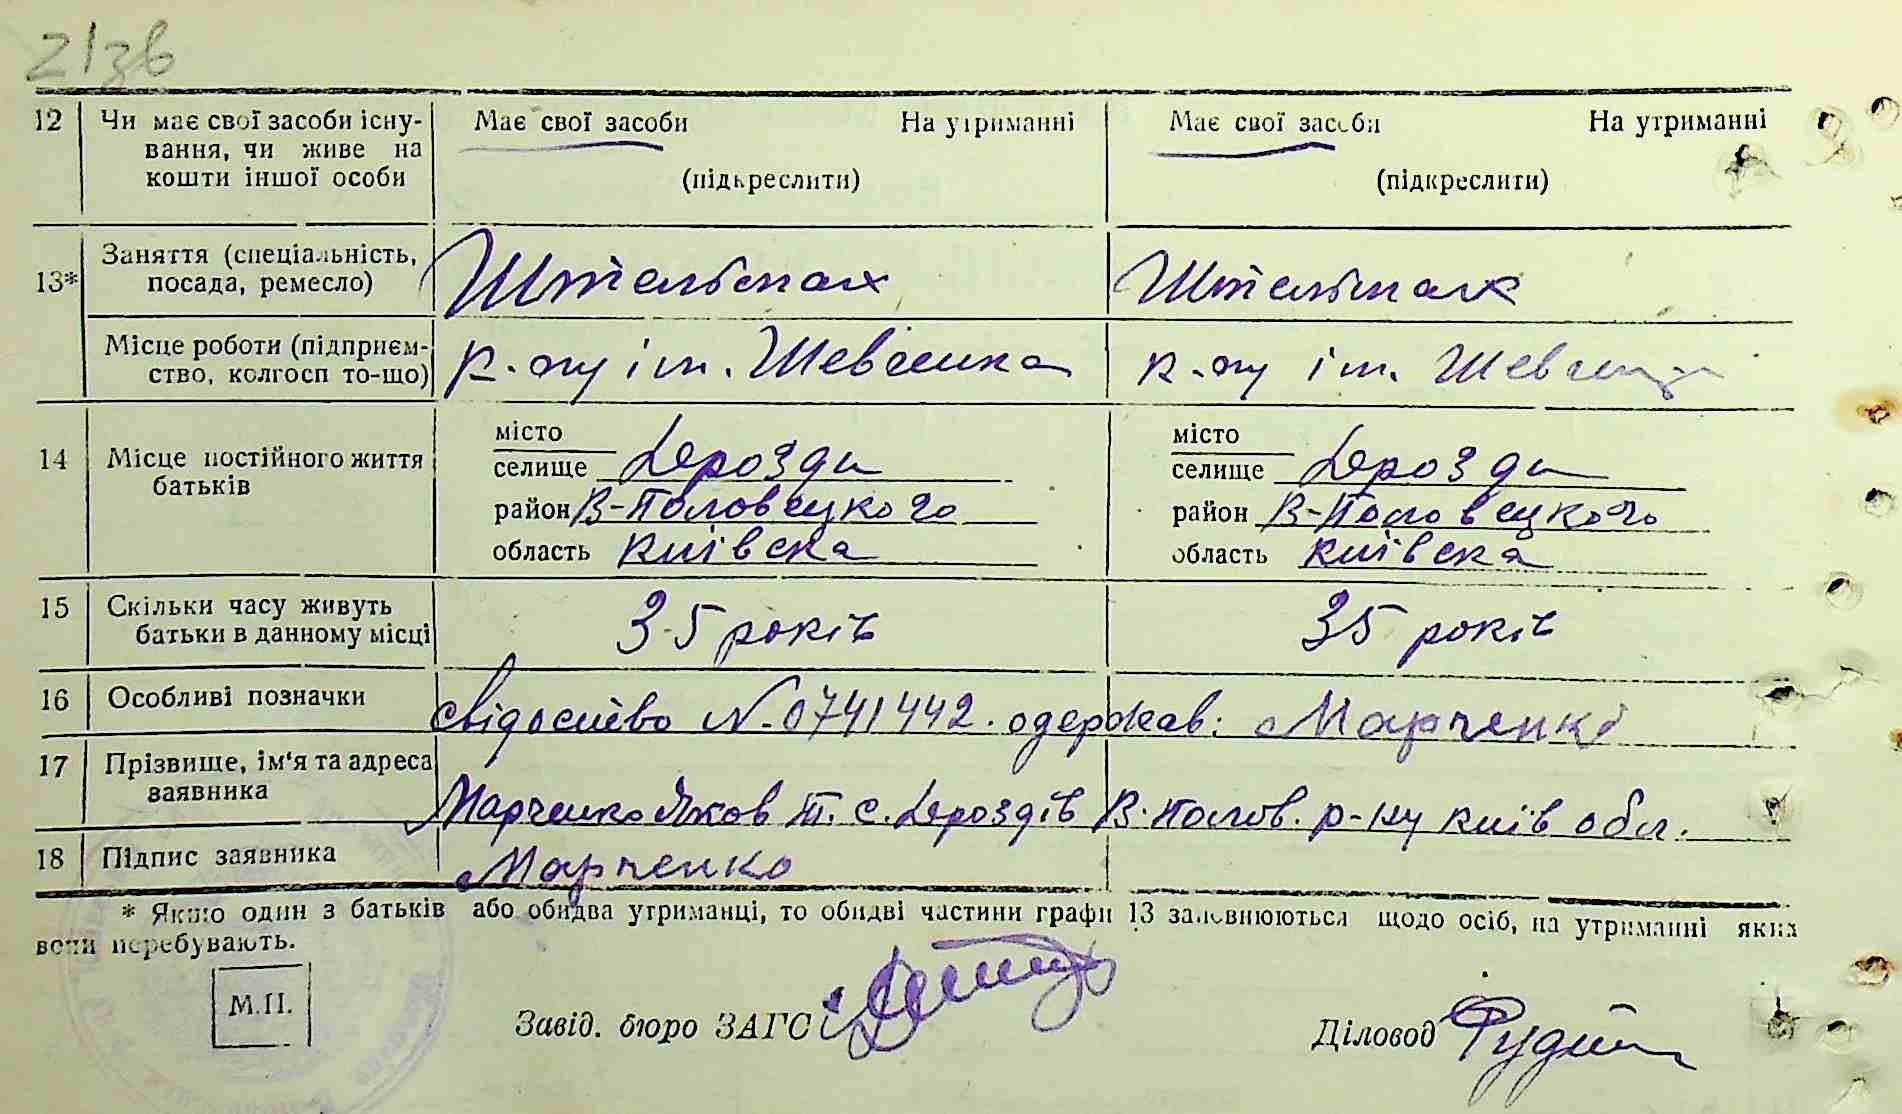 21зв
12 Чи має свої засоби існу- Має свої засоби На утриманні Має свої засоби На утриманні
вання, чи живе на
кошти іншої особи (підкреслити) (підкреслити)
13* Заняття (спеціальність, Штельмах Штельмах
посада, ремесло)
Місце роботи (підприєм- к-пу ім. Шевченка к-пу ім. Шевченка
ство, колгосп то-що)
14 Місце постійного життя місто місто
батьків селище Дрозди селище Дрозди
район В-Половецкого район В-Половецкого
область Київска область Київска
15 Скільки часу живуть 35 років 35 років
батьки в данному місці
16 Особливі позначки свідоцтво N-0741442. одержав: Марченко
17 Прізвище, ім'я та адреса Марченко Яков П. с. Дроздів В. Полов. р-ну Київ обл.
заявника
18 Підпис заявника Марченко
* Якщо один з батьків або обидва утриманці, то обидві частини графи 13 заповнюються щодо осіб, на утриманні яких
вони перебувають.
М.П. Завід. бюро ЗАГС Діловод